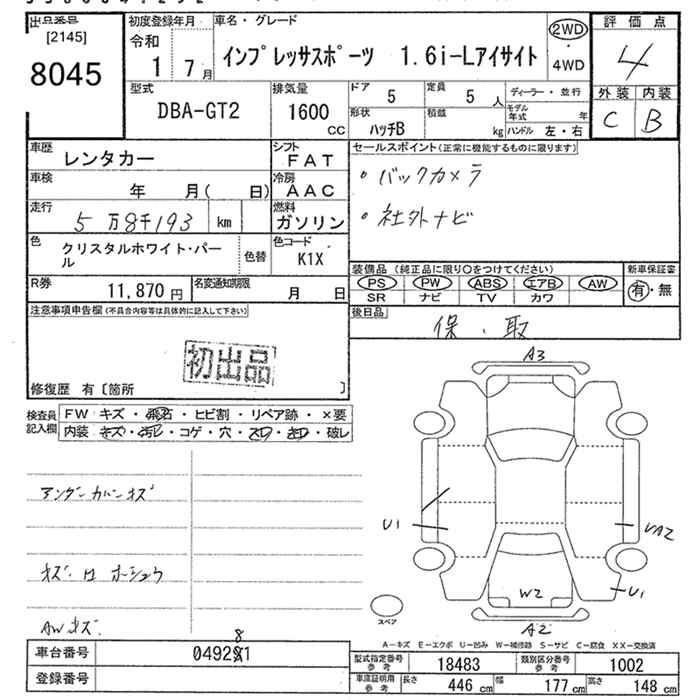 出品番号
[2145]
8045
初度登録年月
令和
1 7月
車名・グレード
インプレッサスポーツ 1.6i-Lアイサイト
2WD
・
4WD
評価点
4
外装 内装
C B
型式
DBA-GT2
排気量
1600
CC
ドア 5
定員 5人
形状 ハッチB
積載 kg
ディーラー・並行
モデル年式 年
ハンドル 左・右
車歴 レンタカー
シフト FAT
車検 年 月( 日)
冷房 AAC
走行 5万8千193 km
燃料 ガソリン
色 クリスタルホワイト・パール
色替
色コード K1X
R券 11,870円
名変通知期限 月 日
セールスポイント(正常に機能するものに限ります)
・バックカメラ
・社外ナビ
装備品(純正品に限り○をつけてください)
PS PW ABS エアB AW
SR ナビ TV カワ
新車保証書
有・無
後日品
保・取
注意事項申告欄(不具合内容等は具体的に記入して下さい)
初出品
修復歴 有〔箇所 〕
検査員記入欄
FW キズ・飛石・ヒビ割・リペア跡・×要
内装 キズ・汚レ・コゲ・穴・スレ・キレ・破レ
アンダーカバーキズ
キズ・凹 ホーショウ
AWキズ
A3
U1
UA2
U1
W2
A2
スペア
A-キズ E-エクボ U-凹み W-補修跡 S-サビ C-腐食 XX-交換済
車台番号 049281
8
登録番号
型式指定番号参考 18483
類別区分番号参考 1002
車庫証明用参考 長さ 446cm 幅 177cm 高さ 148cm